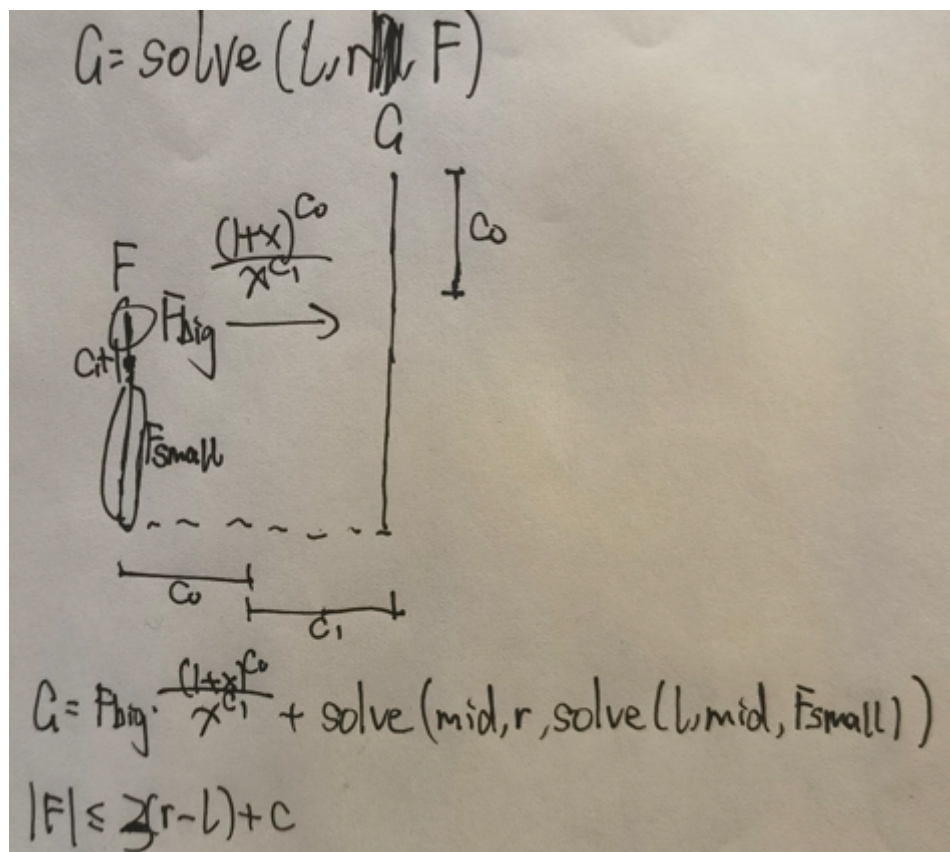 G = solve(l, r, F)
G
(1+x)^{C_0}
x^{C_1}
C_0
F
F_{big}
C_1+1
F_{small}
C_0
C_1
G = F_{big} · \frac{(1+x)^{C_0}}{x^{C_1}} + solve(mid, r, solve(l, mid, F_{small}))
|F| ≤ 2(r-l)+c